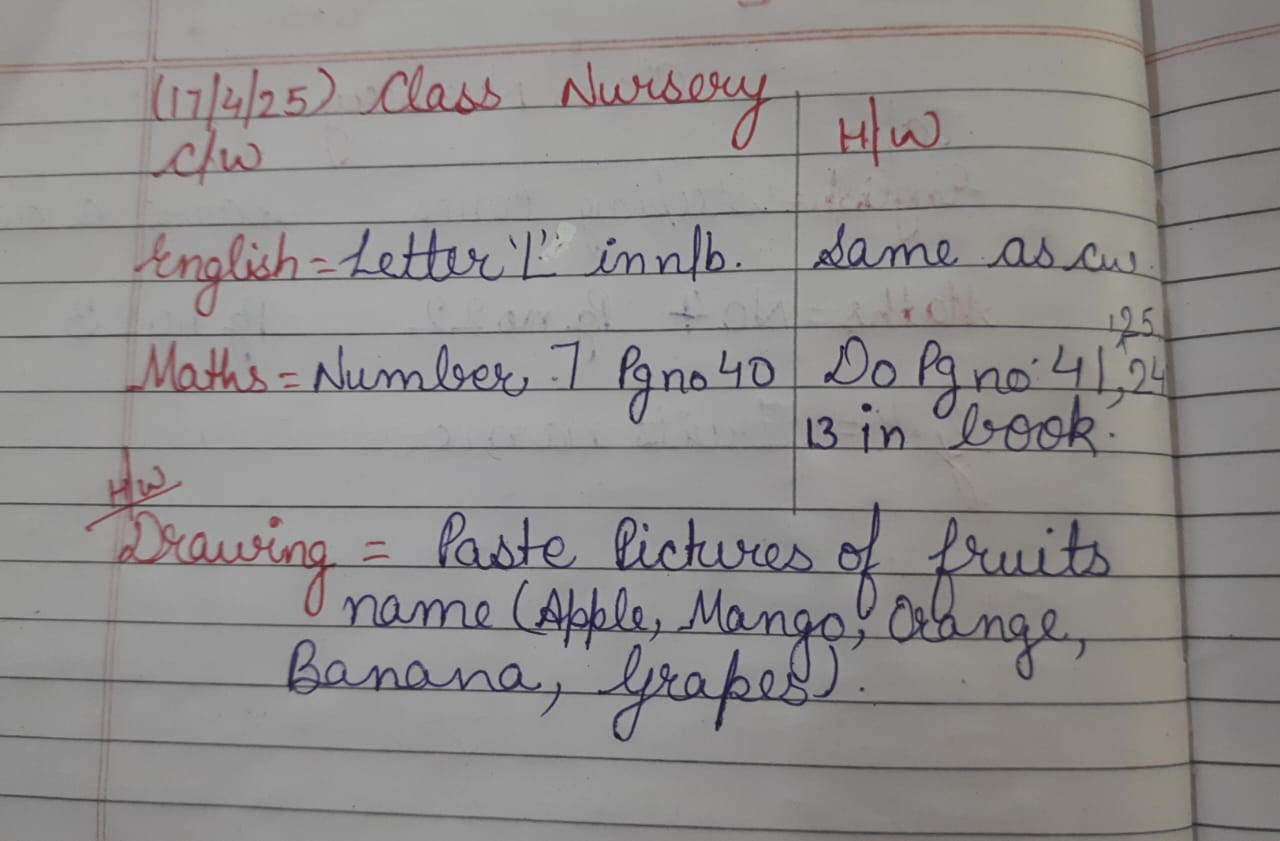 (17/4/25) Class Nursery
C/W
H/W
English = Letter 'L' in n/b.
Same as cw.
Maths = Number 7 Pg no 40
Do Pg no. 41, 24
,25
13 in book.
H/W
Drawing = Paste Pictures of fruits
name (Apple, Mango, Orange,
Banana, Grapes).